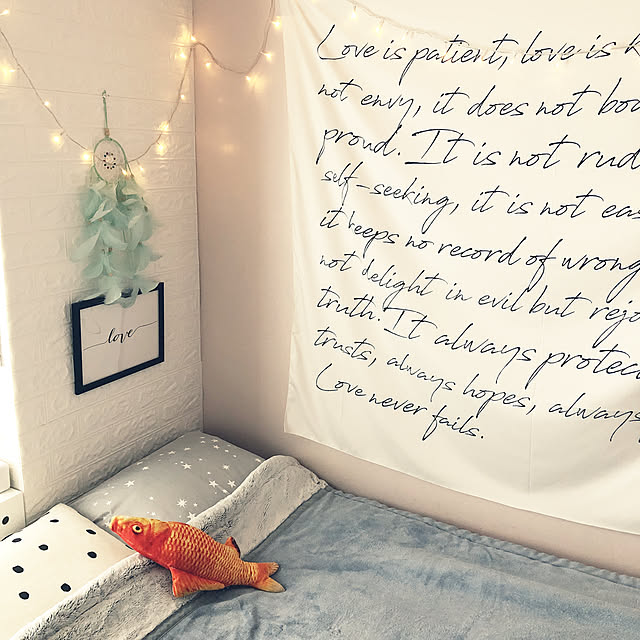 Love is patient, love is k
not envy, it does not boa
proud. It is not rud
self-seeking, it is not eas
it keeps no record of wrong
not delight in evil but rejo
truth. It always protec
trusts, always hopes, always
Love never fails.
love